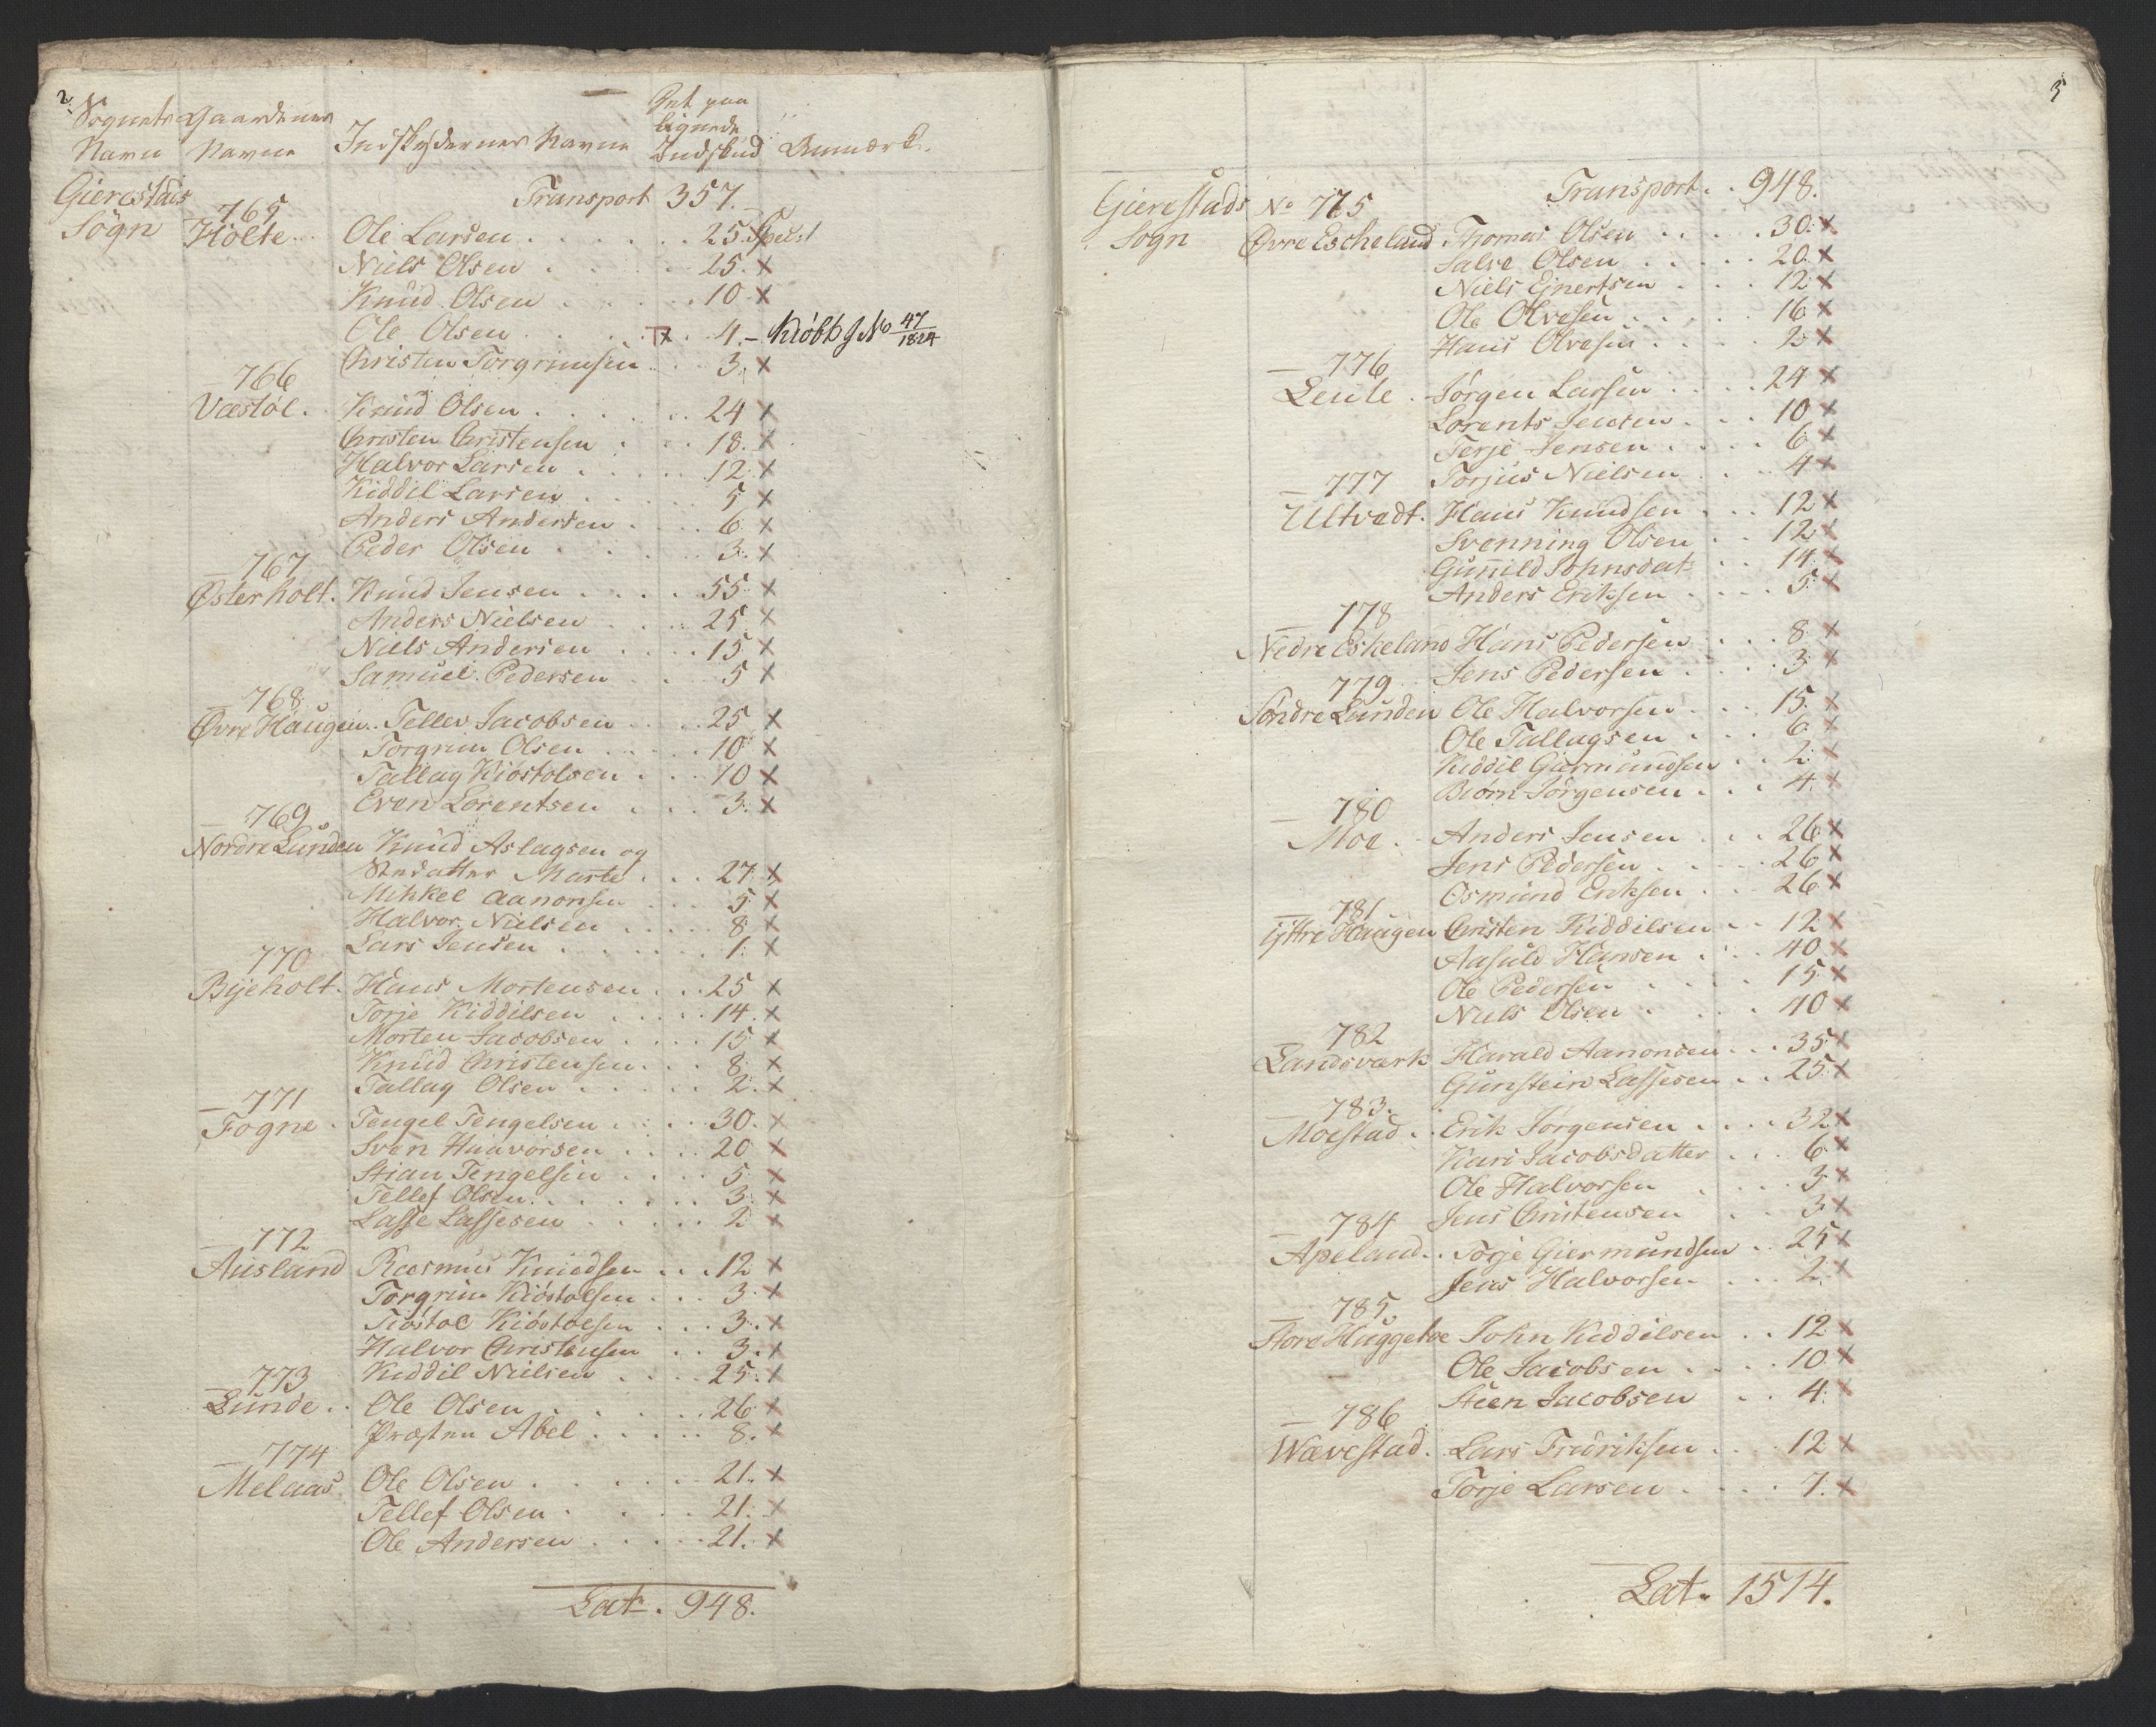 2.
Sognets Gaardenes Det paa
Navn Navne Indskydernes Navne lignede
Indskud Anmærk.
Gierestads Transport 357.
Sogn 765
Holte Ole Larsen 25.
Niels Olsen 25. x
Knud Olsen 10 x
Ole Olsen x 4. - Kiöbt J No 47/1824
Christen Torgrimsen 3. x
766
Væstøl. Knud Olsen 24 x
Christen Christensen 18. x
Halvor Larsen 12. x
Kiddil Larsen 5 x
Anders Andersen 6. x
Peder Olsen 3. x
767
Østerholt. Knud Jensen 55 x
Anders Nielsen 25 x
Niels Andersen 15 x
Samuel Pedersen 5 x
768
Øvre Haugen. Tellev Jacobsen 25 x
Torgrim Olsen 10 x
Tallag Kiöstolsen 10 x
Even Lorentsen 3. x
769
Nordre Lunden Knud Aslagsen og
Stedatter Marte 27. x
Mihkel Aanonsen 5 x
Halvor Nielsen 8. x
Lars Jensen 1. x
770
Byeholt. Hans Mortensen 25 x
Torje Kiddilsen 14. x
Morten Jacobsen 15 x
Knud Christensen 8. x
Tallag Olsen 2. x
771
Fogne. Tengel Tengelsen 30. x
Sven Haavorsen 20 x
Stian Tengelsen 5. x
Tellef Olsen 3. x
Lasse Lassesen 2 x
772
Ausland Rasmus Knudsen 12 x
Torgrim Kióstolsen 3. x
Kióstol Kióstolsen 3. x
Halvor Christensen 3. x
Kiddil Nielsen 25. x
773
Lunde. Ole Olsen 26 x
Præsten Abel 8. x
774
Melaas Ole Olsen 21. x
Tellef Olsen 21. x
Ole Andersen 21. x
Lat. 948.
3
Gierestads No 775 Transport 948.
Sogn Øvre Escheland Thomas Olsen 30. x
Salve Olsen 20. x
Niels Ejnertsen 12 x
Ole Olvesen 16 x
Hans Olvesen 2 x
776
Leite Jörgen Larsen 24 x
Lorents Jensen 10 x
Terje Jensen 6 x
Torjus Nielsen 4 x
777
Ultvedt. Hans Knudsen 12 x
Svenning Olsen 12 x
Gunild Johnsdat 14. x
Anders Eriksen 5. x
778
Nedre Eskeland Hans Pedersen 8 x
Jens Pedersen 3 x
779
Söndre Lunden Ole Halvorsen 15. x
Ole Tallagsen 6 x
Kiddil Giermundsen 2 x
Biörn Jörgensen 4. x
780
Moe. Anders Jensen 26 x
Jens Pedersen 26 x
Osmund Eriksen 26 x
781
Yttre Haugen Christen Kiddilsen 12 x
Aasuld Hansen 40 x
Ole Pedersen 15 x
Niels Olsen 40 x
782
Landsværk Harald Aanonsen 35 x
Gunstein Lassesen 25. x
783.
Moestad. Erik Jörgensen 32 x
Kari Jacobsdatter 6 x
Ole Halvorsen 3 x
Jens Christensen 3 x
784
Apeland. Torje Giermundsen 25 x
Jens Halvorsen 2. x
785
Store Huggetoe John Kiddilsen 12 x
Ole Jacobsen 10 x
Steen Jacobsen 4. x
786
Wævestad. Lars Fredriksen 12 x
Torje Larsen 7. x
Lat. 1514.